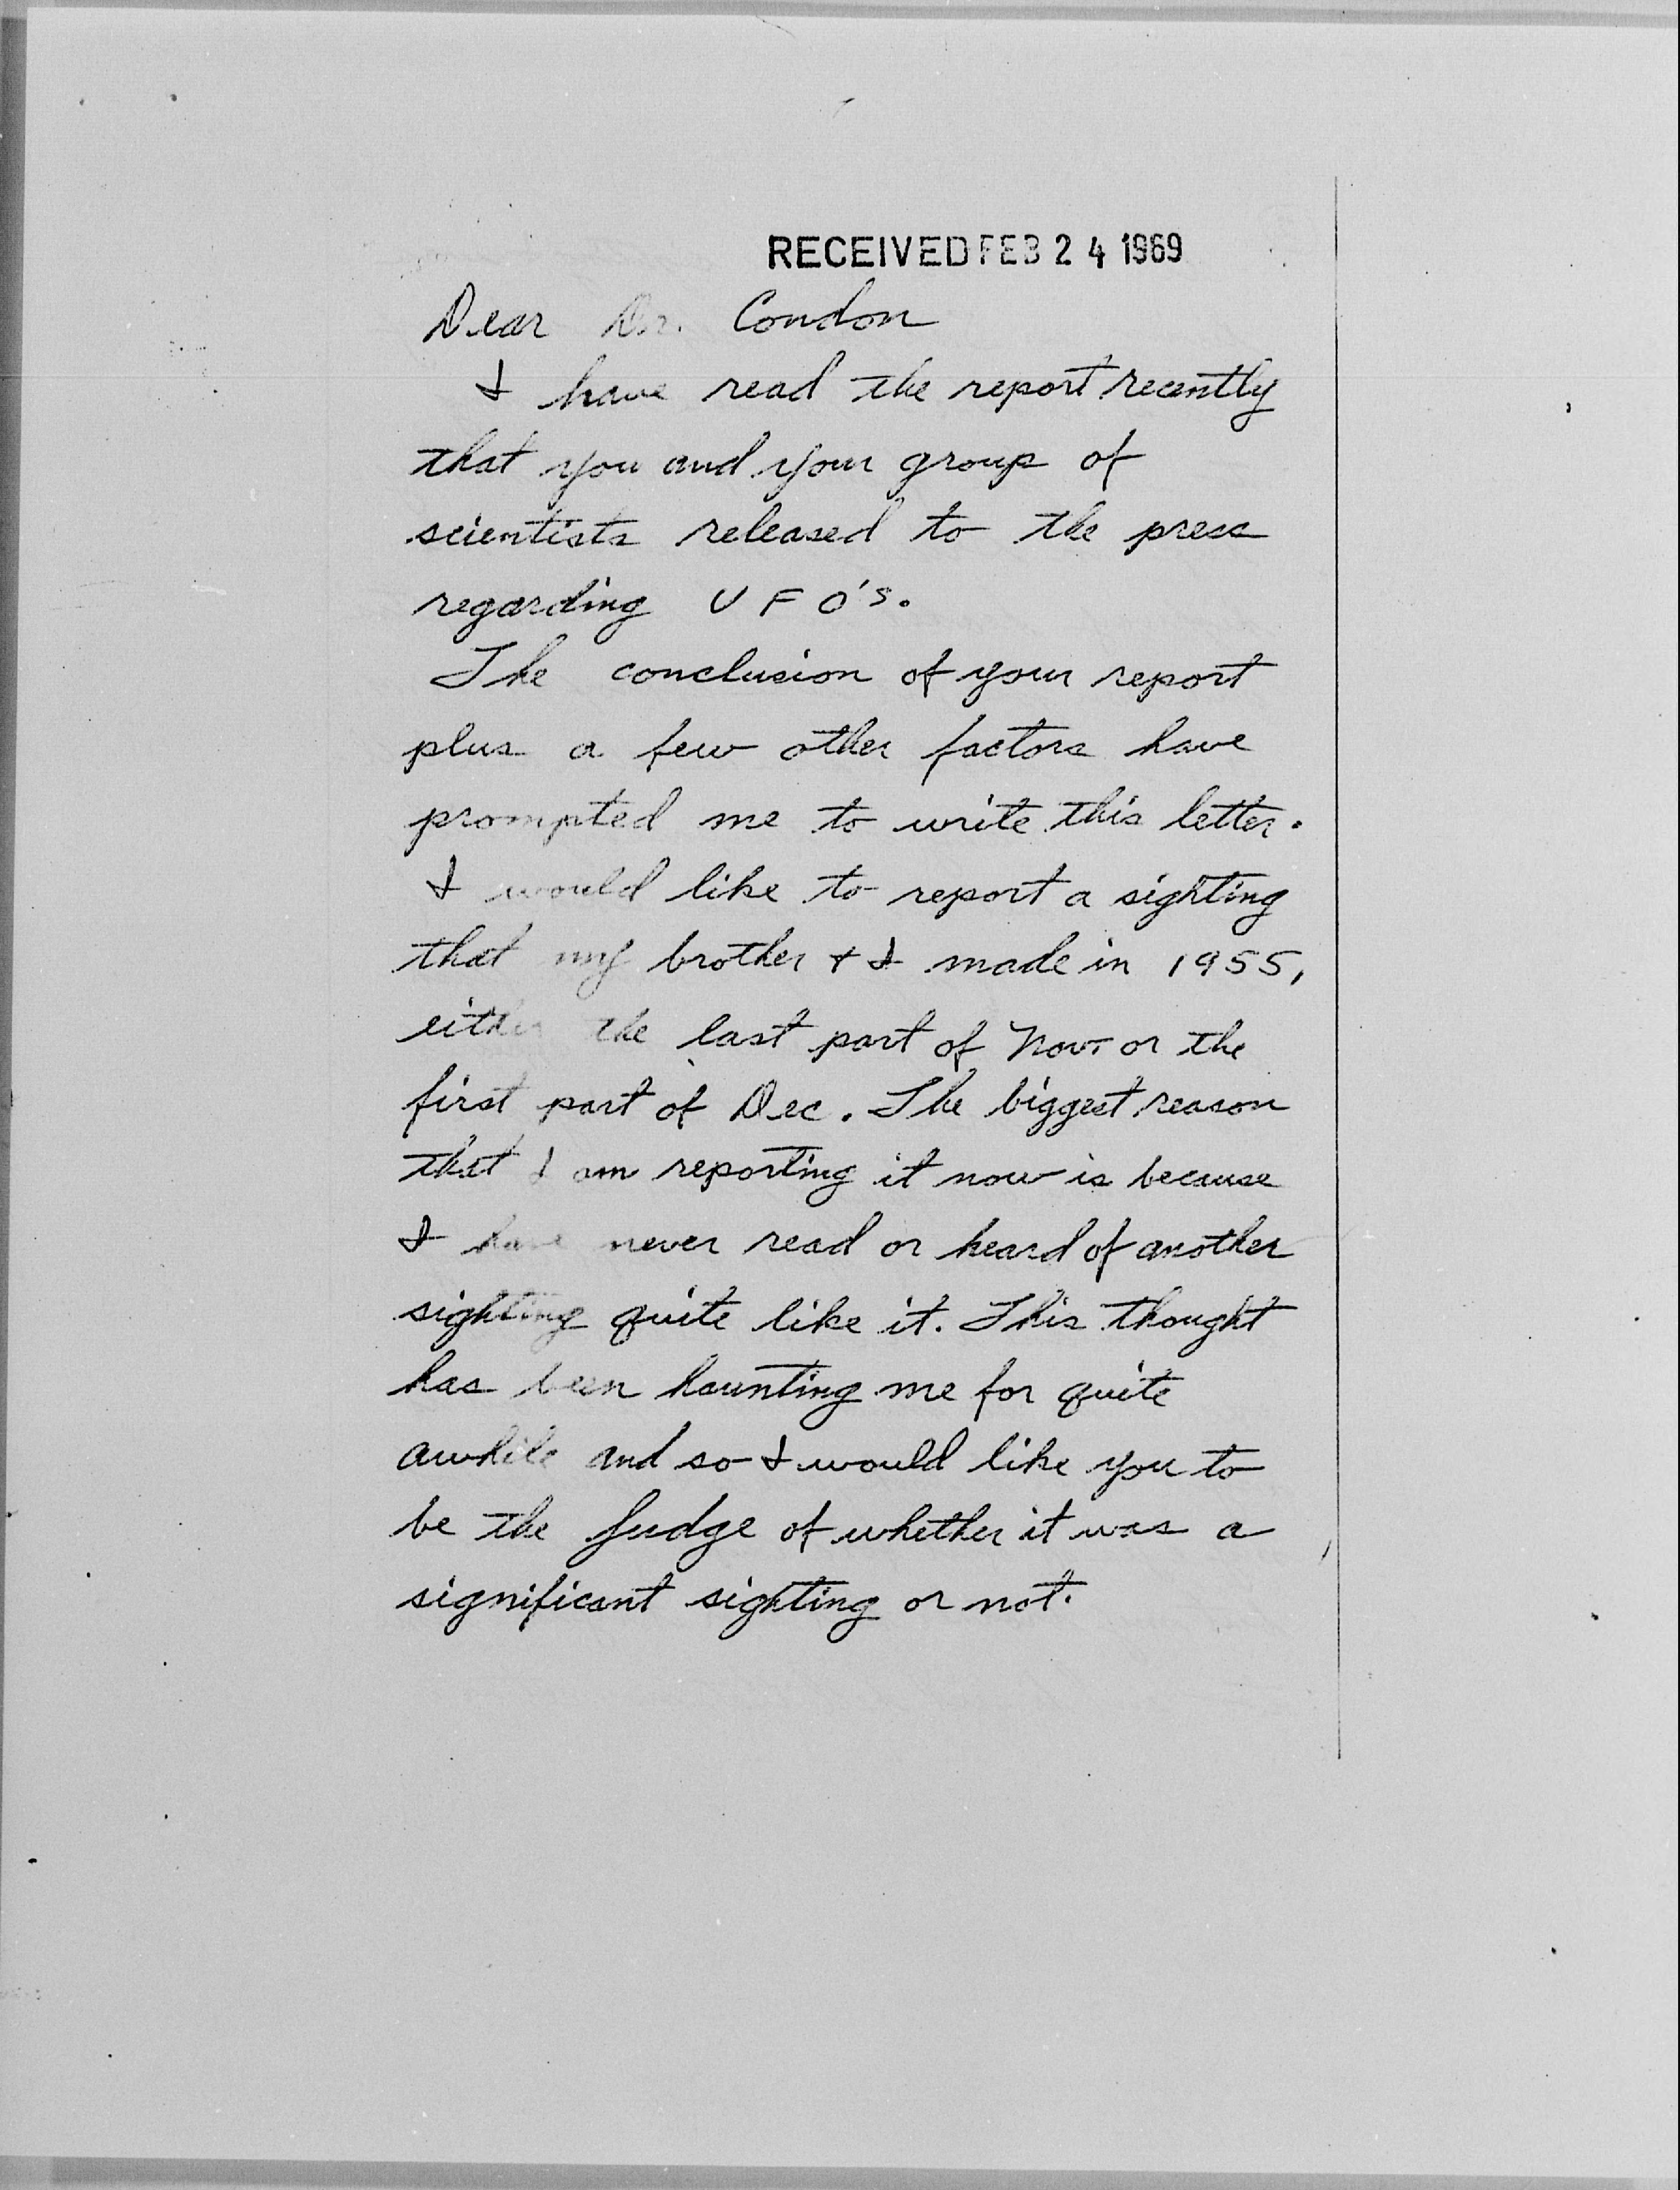 RECEIVED FEB 24 1969
Dear Dr. Condon
I have read the report recently
that you and your group of
scientists released to the press
regarding UFO's.
The conclusion of your report
plus a few other factors have
prompted me to write this letter.
I would like to report a sighting
that my brother + I made in 1955,
either the last part of Nov. or the
first part of Dec. The biggest reason
that I am reporting it now is because
I have never read or heard of another
sighting quite like it. This thought
has been haunting me for quite
awhile and so I would like you to
be the judge of whether it was a
significant sighting or not.